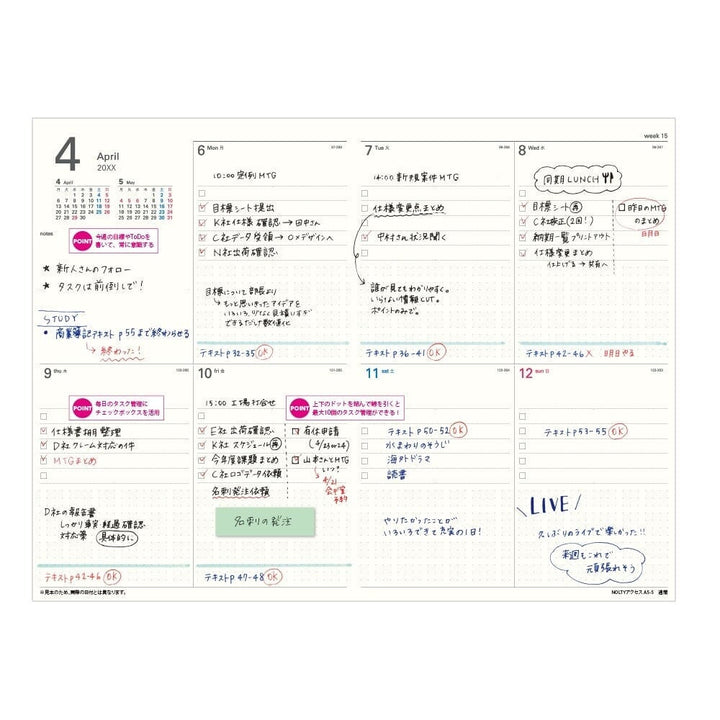 4
April
20XX
4 April
5 May
notes
POINT 今週の目標やToDoを
書いて、常に意識する
★ 新人さんのフォロー
★ タスクは前倒しで！
STUDY
● 商業簿記テキスト P55まで終わらせる
→ 終わった！
6 Mon 月
10:00 定例MTG
目標シート提出
K社仕様確認→田中さん
C社データ受領→Oデザインへ
N社出荷確認
目標について 部長より
テキストP32-35 OK
7 Tue 火
14:00 新規案件MTG
仕様変更点まとめ
中村さん状況聞く
誰が見てもわかりやすく。
いらない情報CUT。
ポイントのみで。
テキストP36-41 OK
week 15
8 Wed 水
同期LUNCH
目標シート 再
C社校正(2回！)
納期一覧プリントアウト
仕様変更まとめ
仕上げる→共有へ
昨日のMTG
のまとめ
テキストP42-46 × 明日やる
9 Thu 木
POINT 毎日のタスク管理に
チェックボックスを活用
仕様書類整理
D社クレーム対応の件
MTGまとめ
D社の報告書
しっかり事実・経過確認
対応策 具体的に
テキストP42-46 OK
10 Fri 金
15:00 工場打合せ
POINT 上下のドットを結んで線を引くと
最大10個のタスク管理ができる！
E社出荷確認
K社スケジュール 再
今年度課題まとめ
C社ロゴデータ依頼
名刺発注依頼
有休申請
(4/23 or 24)
山本さんとMTG
いつ？
4/21
会議室
予約
名刺の発注
テキストP47-48 OK
11 Sat 土
テキストP50-52 OK
水まわりのそうじ
海外ドラマ
読書
やりたかったことが
いろいろできて充実の1日！
12 Sun 日
テキストP53-55 OK
LIVE
久しぶりのライブで楽しかった!!
来週もこれで
頑張れそう
※見本のため、実際の日付とは異なります。
NOLTYアクセスA5-5 週間